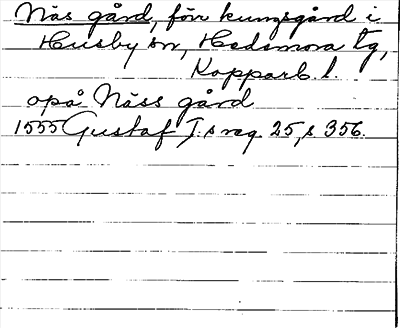 Näs gård, förr kungsgård i
Husby sn, Hedemora tg,
Kopparb. l.
opå Näss gård
1555 Gustaf I:s reg. 25, s 356.